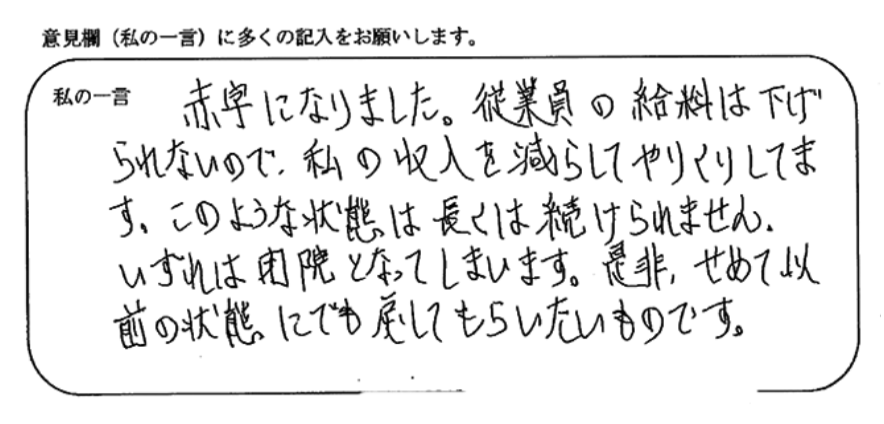 意見欄（私の一言）に多くの記入をお願いします。
私の一言
赤字になりました。従業員の給料は下げ
られないので、私の収入を減らしてやりくりしてま
す。このような状態は長くは続けられません。
いずれは閉院となってしまいます。是非、せめて以
前の状態にでも戻してもらいたいものです。